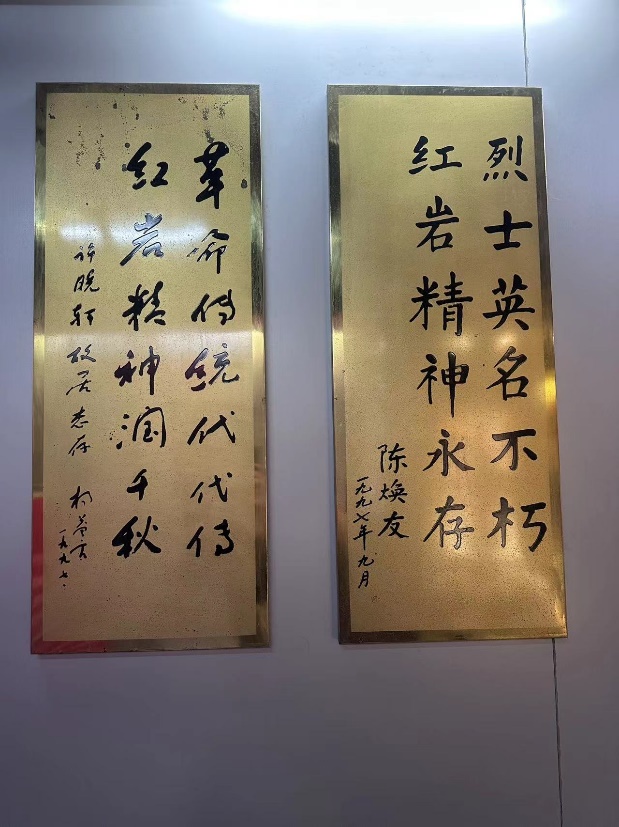 烈士英名不朽
红岩精神永存
陈焕友
一九九七年九月
革命传统代代传
红岩精神润千秋
许晓轩故居惠存
一九九七